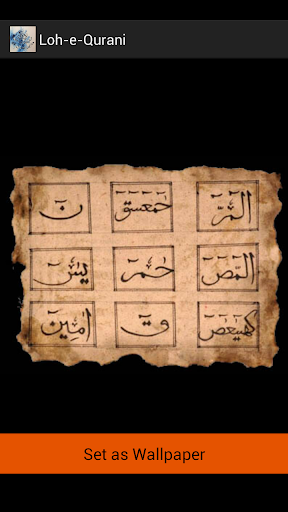 Loh-e-Qurani
الٓمّٓرٰ حٰمٓعٓسٓقٓ نٓ
الٓمّٓصٓ حٰمٓ يٰسٓ
كٓهٰيٰعٓصٓ قٓ اٰمِيْن
Set as Wallpaper